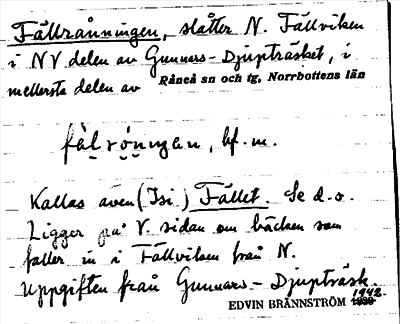 Fällrånningen, slåtter N. Fällviken
i NV delen av Gunnars-Djupträsket, i
mellersta delen av Råneå sn och tg, Norrbottens län
fàl rö́nıŋən, bf. m.
Kallas även (Isi) Fället. Se d.o.
Ligger på V. sidan om bäcken som
faller in i Fällviken från N.
Uppgiften från Gunnars-Djupträsk.
EDVIN BRÄNNSTRÖM 1942